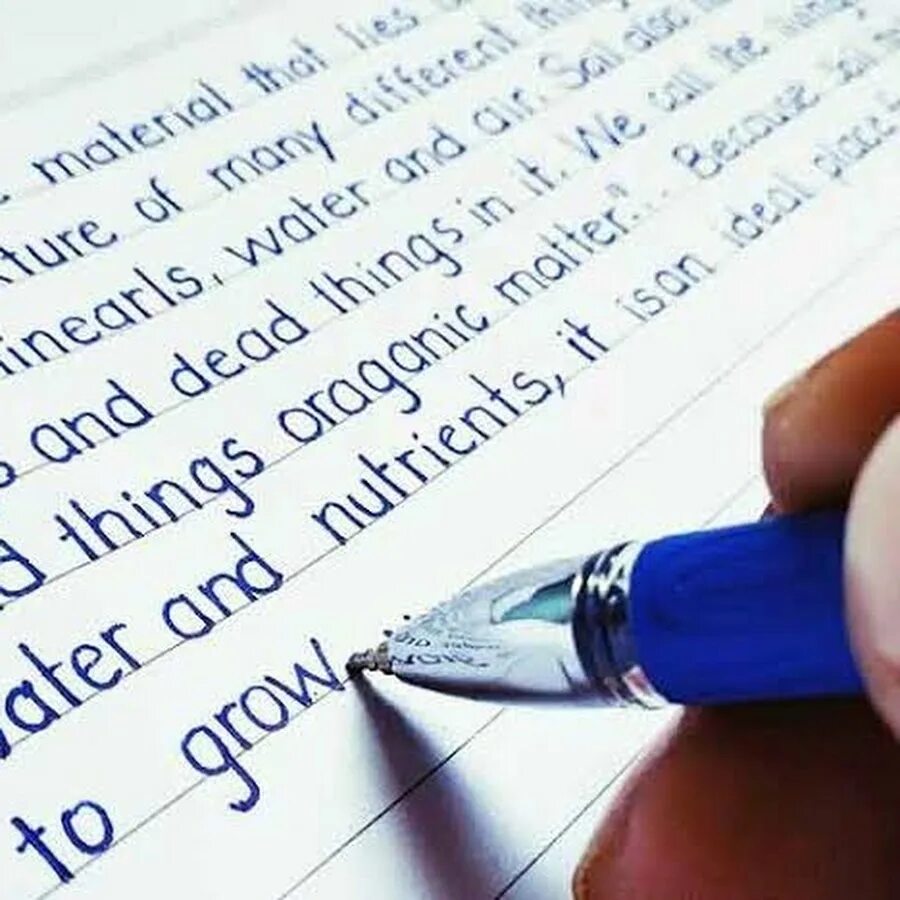 material that lies
ture of many different thing
inearls, water and air. Soil also
and dead things in it. We call the
d things oraganic matter". Because soil
water and nutrients, it is an ideal place
to grow